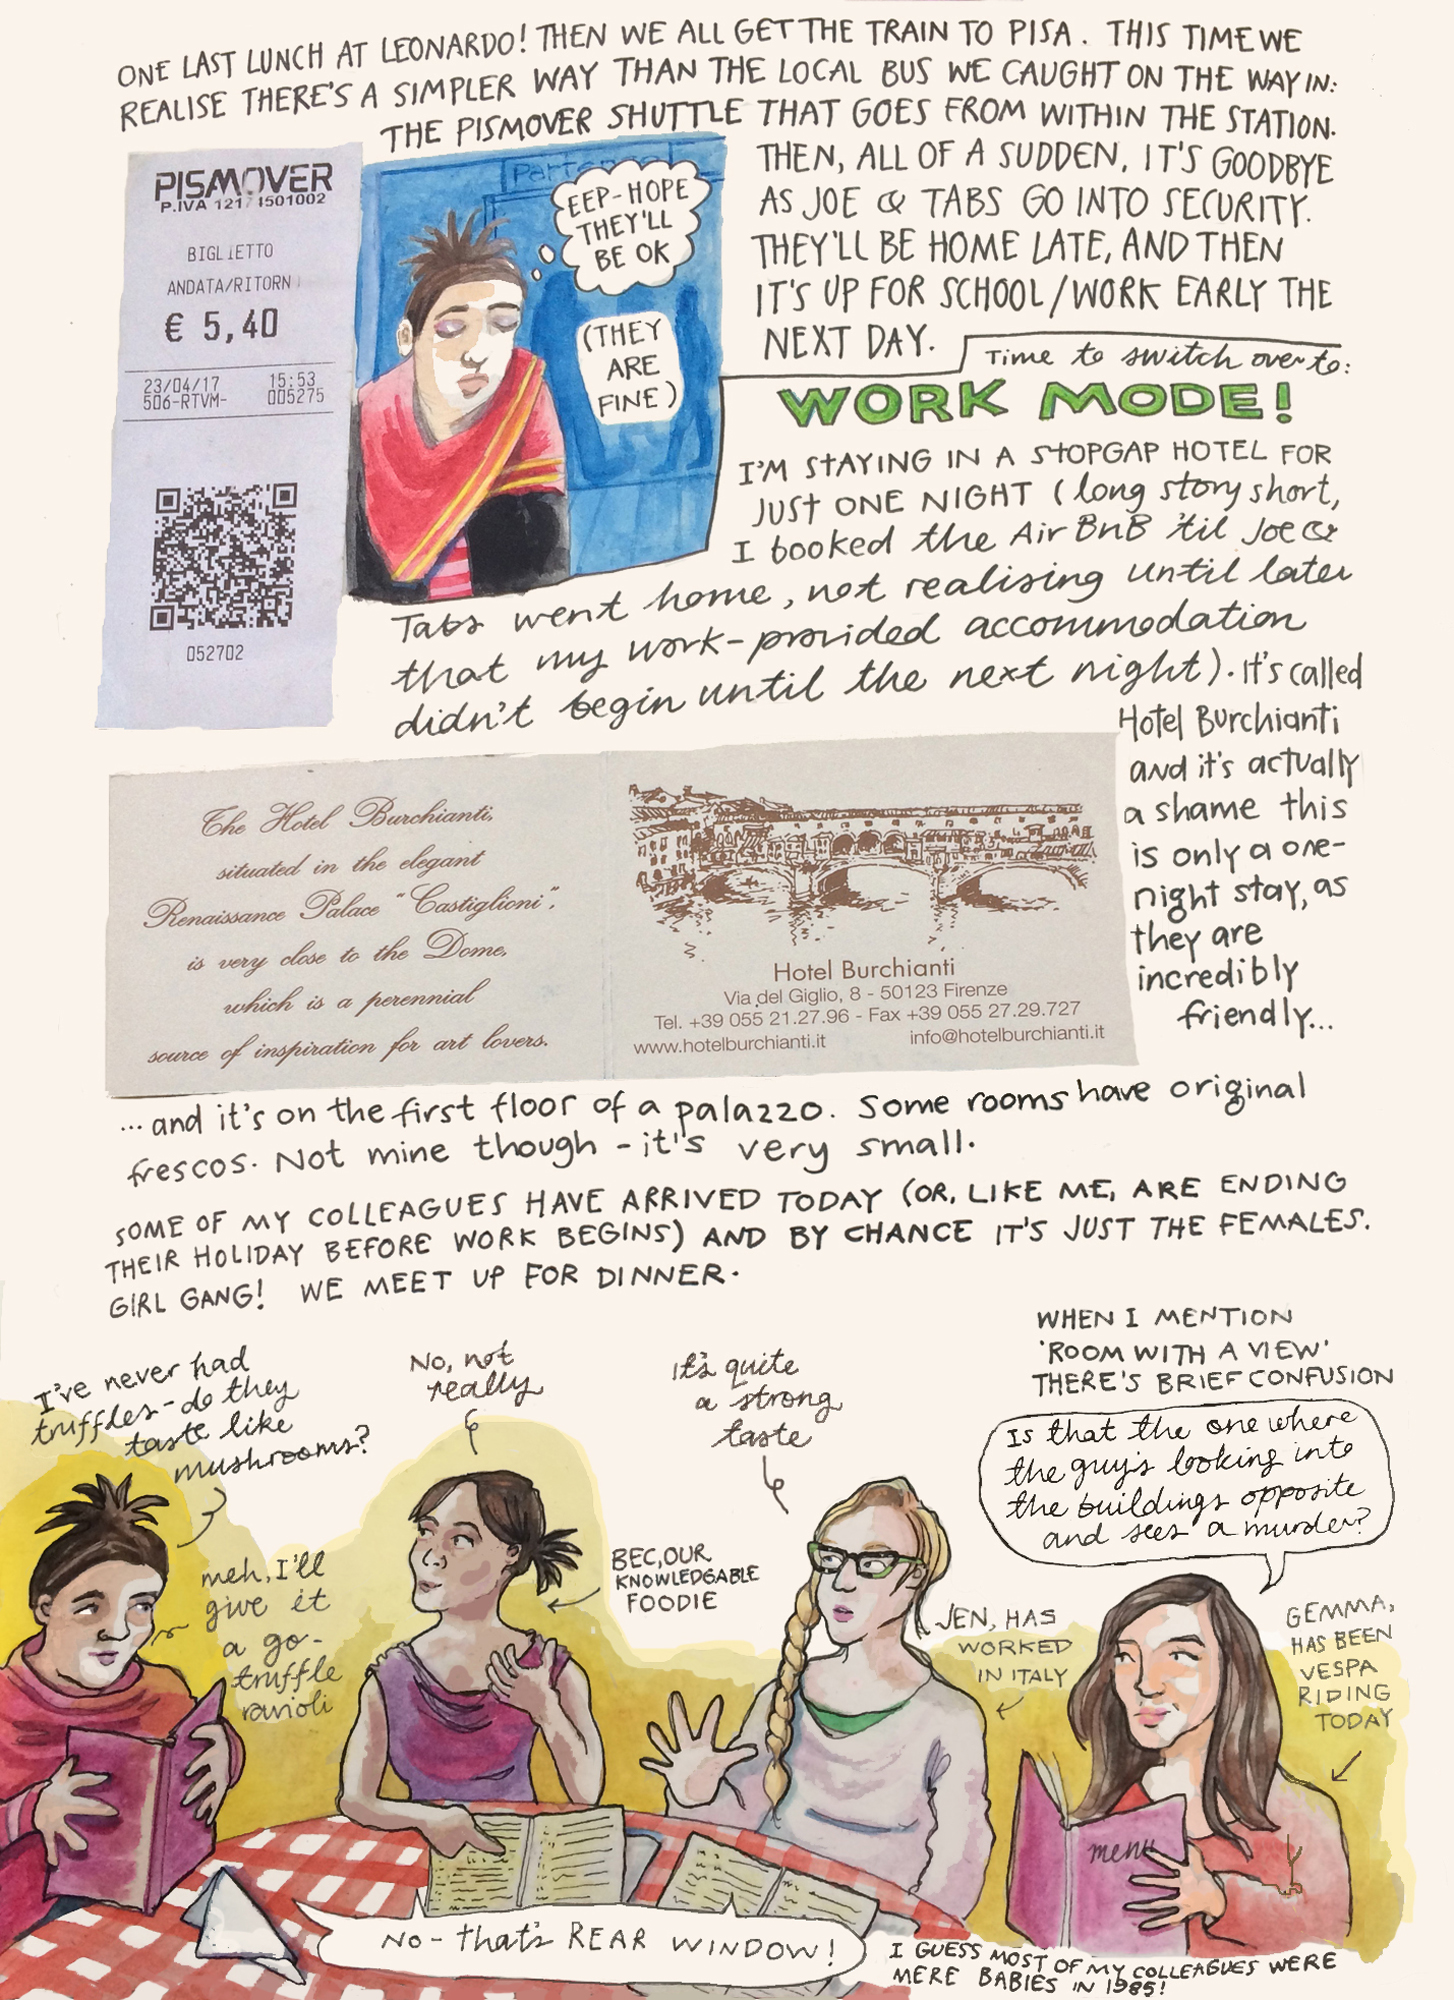 ONE LAST LUNCH AT LEONARDO! THEN WE ALL GET THE TRAIN TO PISA. THIS TIME WE
REALISE THERE'S A SIMPLER WAY THAN THE LOCAL BUS WE CAUGHT ON THE WAY IN:
THE PISMOVER SHUTTLE THAT GOES FROM WITHIN THE STATION.
THEN, ALL OF A SUDDEN, IT'S GOODBYE
AS JOE & TABS GO INTO SECURITY.
THEY'LL BE HOME LATE, AND THEN
IT'S UP FOR SCHOOL/WORK EARLY THE
NEXT DAY.
PISMOVER
P.IVA 12174501002
BIGLIETTO
ANDATA/RITORN
€ 5,40
23/04/17 15:53
506-RTVM- 005275
052702
Parten
EEP-HOPE
THEY'LL
BE OK
(THEY
ARE
FINE)
Time to switch over to:
WORK MODE!
I'M STAYING IN A STOPGAP HOTEL FOR
JUST ONE NIGHT (long story short,
I booked the Air BnB 'til Joe &
Tabs went home, not realising until later
that my work-provided accommodation
didn't begin until the next night). It's called
Hotel Burchianti
and it's actually
a shame this
is only a one-
night stay, as
they are
incredibly
friendly...
The Hotel Burchianti,
situated in the elegant
Renaissance Palace "Castiglioni",
is very close to the Dome,
which is a perennial
source of inspiration for art lovers.
Hotel Burchianti
Via del Giglio, 8 - 50123 Firenze
Tel. +39 055 21.27.96 - Fax +39 055 27.29.727
www.hotelburchianti.it info@hotelburchianti.it
...and it's on the first floor of a palazzo. Some rooms have original
frescos. Not mine though - it's very small.
SOME OF MY COLLEAGUES HAVE ARRIVED TODAY (OR, LIKE ME, ARE ENDING
THEIR HOLIDAY BEFORE WORK BEGINS) AND BY CHANCE IT'S JUST THE FEMALES.
GIRL GANG! WE MEET UP FOR DINNER.
I've never had
truffles-do they
taste like
mushrooms?
No, not
really
It's quite
a strong
taste
WHEN I MENTION
'ROOM WITH A VIEW'
THERE'S BRIEF CONFUSION
Is that the one where
the guy's looking into
the buildings opposite
and sees a murder?
meh, I'll
give it
a go-
truffle
ravioli
BEC, OUR
KNOWLEDGABLE
FOODIE
JEN, HAS
WORKED
IN ITALY
GEMMA,
HAS BEEN
VESPA
RIDING
TODAY
menu
NO - that's REAR WINDOW!
I GUESS MOST OF MY COLLEAGUES WERE
MERE BABIES IN 1985!